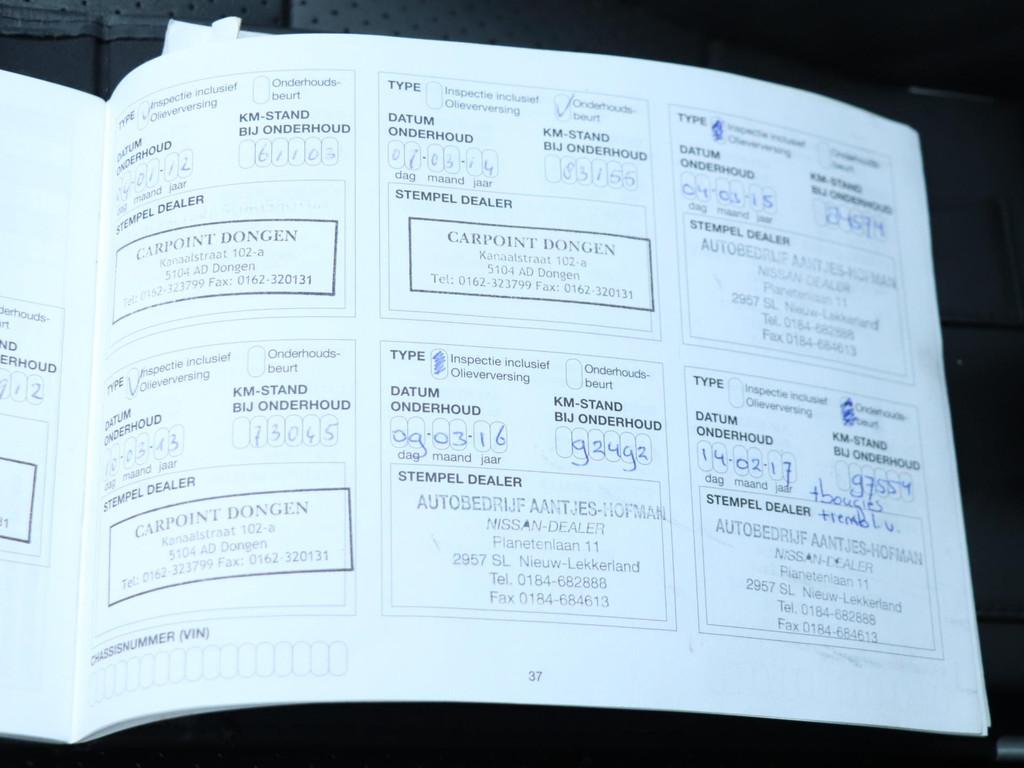 TYPE Inspectie inclusief Olieverversing Onderhouds-beurt
DATUM ONDERHOUD
KM-STAND BIJ ONDERHOUD
01-12
61103
dag maand jaar
STEMPEL DEALER
CARPOINT DONGEN
Kanaalstraat 102-a
5104 AD Dongen
Tel: 0162-323799 Fax: 0162-320131
TYPE Inspectie inclusief Olieverversing Onderhouds-beurt
DATUM ONDERHOUD
KM-STAND BIJ ONDERHOUD
07-03-14
83155
dag maand jaar
STEMPEL DEALER
CARPOINT DONGEN
Kanaalstraat 102-a
5104 AD Dongen
Tel: 0162-323799 Fax: 0162-320131
TYPE Inspectie inclusief Olieverversing Onderhouds-beurt
DATUM ONDERHOUD
KM-STAND BIJ ONDERHOUD
04-03-15
dag maand jaar
STEMPEL DEALER
AUTOBEDRIJF AANTJES-HOFMAN
NISSAN-DEALER
Planetenlaan 11
2957 SL Nieuw-Lekkerland
Tel. 0184-682888
Fax 0184-684613
TYPE Inspectie inclusief Olieverversing Onderhouds-beurt
DATUM ONDERHOUD
KM-STAND BIJ ONDERHOUD
10-03-13
73045
dag maand jaar
STEMPEL DEALER
CARPOINT DONGEN
Kanaalstraat 102-a
5104 AD Dongen
Tel: 0162-323799 Fax: 0162-320131
TYPE Inspectie inclusief Olieverversing Onderhouds-beurt
DATUM ONDERHOUD
KM-STAND BIJ ONDERHOUD
09-03-16
92492
dag maand jaar
STEMPEL DEALER
AUTOBEDRIJF AANTJES-HOFMAN
NISSAN-DEALER
Planetenlaan 11
2957 SL Nieuw-Lekkerland
Tel. 0184-682888
Fax 0184-684613
TYPE Inspectie inclusief Olieverversing Onderhouds-beurt
DATUM ONDERHOUD
KM-STAND BIJ ONDERHOUD
14-02-17
97554
dag maand jaar
+bougies
+rembl.v.
STEMPEL DEALER
AUTOBEDRIJF AANTJES-HOFMAN
NISSAN-DEALER
Planetenlaan 11
2957 SL Nieuw-Lekkerland
Tel. 0184-682888
Fax 0184-684613
CHASSISNUMMER (VIN)
37